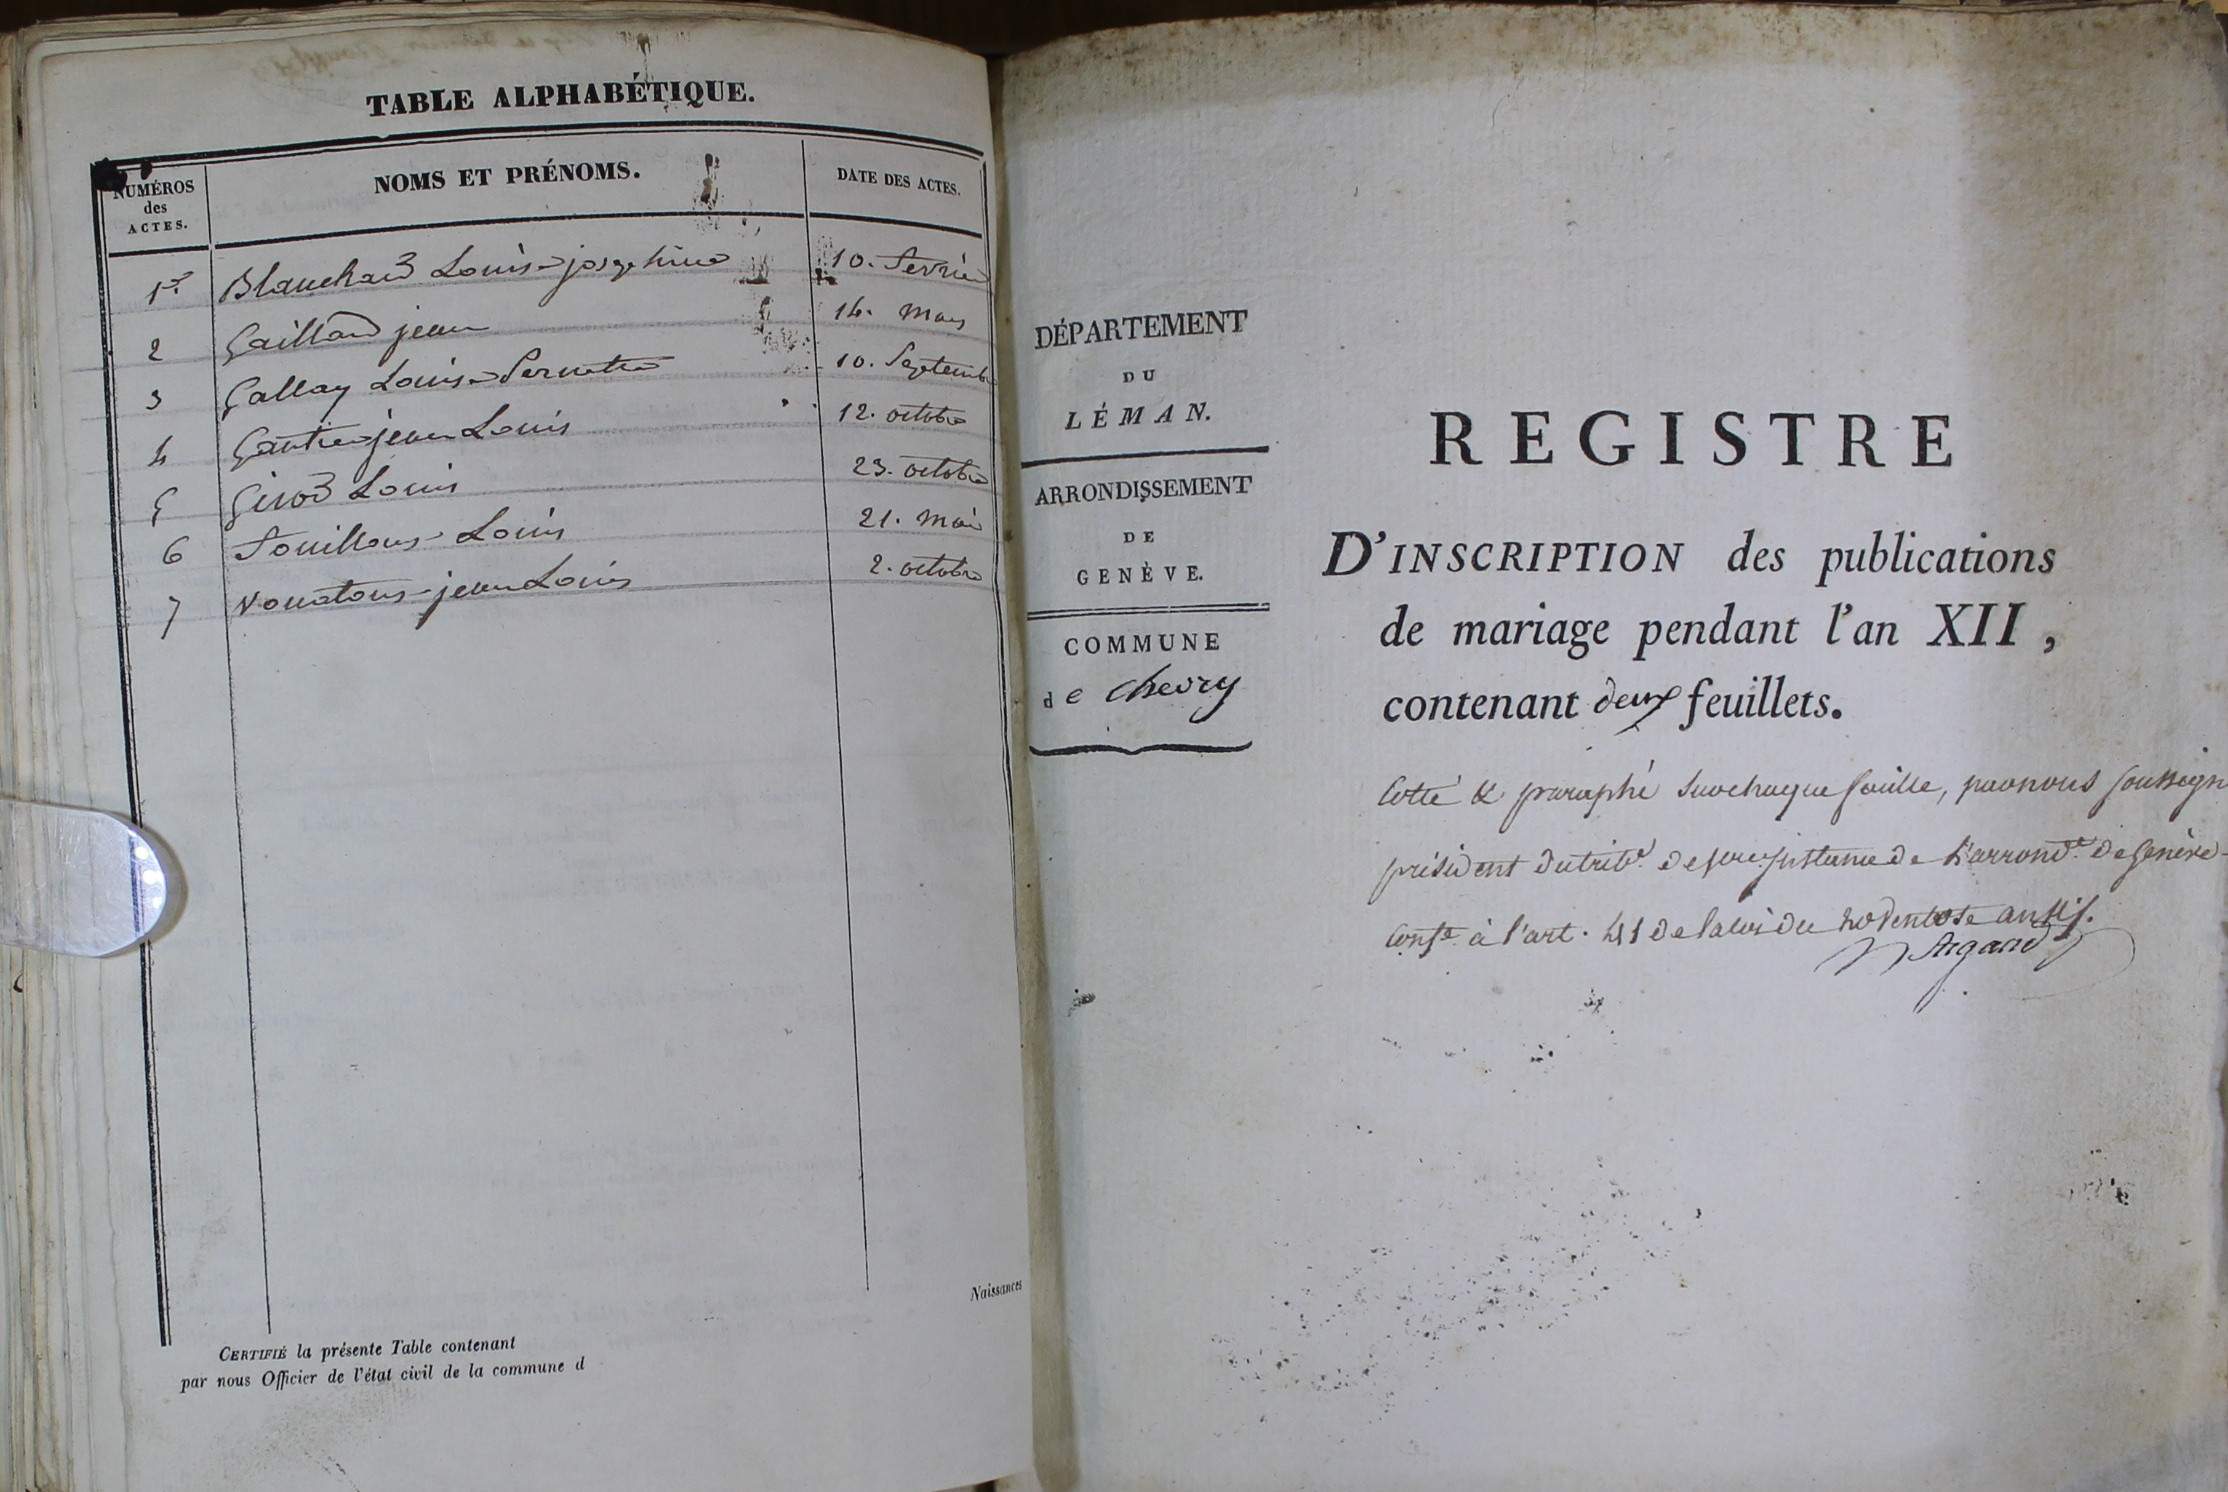 TABLE ALPHABÉTIQUE.
NUMÉROS
des
ACTES.
NOMS ET PRÉNOMS.
DATE DES ACTES.
1er. Blanchard Louise josephine 10. Fevrier
2 Gaillard jean 14. Mars
3 Gallay Louise Pernette 10. Septembre
4 Gautier jean Louis 12. octobre
5 Girod Louis 23. octobre
6 Louis 21. Mai
7 jean Louis 2. octobre
Naissances
CERTIFIÉ la présente Table contenant
par nous Officier de l'état civil de la commune d
DÉPARTEMENT
DU
LÉMAN.
ARRONDISSEMENT
DE
GENÈVE.
COMMUNE
de Chevry
REGISTRE
D'INSCRIPTION des publications
de mariage pendant l'an XII,
contenant deux feuillets.
Cotté & paraphé sur chaque feuille, par nous soussign
président du tribl. de 1ere instance de l'arrondt. de Genève
Conft. à l'art. 41 de la loi du 20 Ventose an XI.
Argand